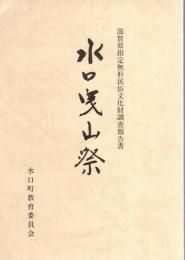 滋賀県指定無形民俗文化財調査報告書
水口曳山祭
水口町教育委員会